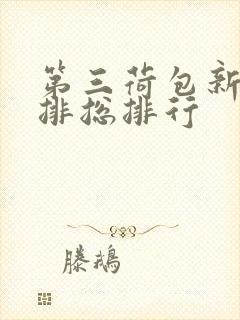 第三荷包新
排挖排行
滕鹅